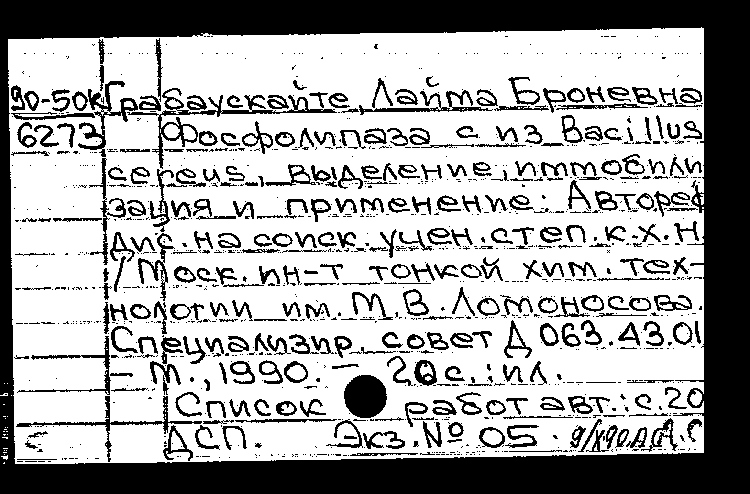 90-50к Грабаускайте, Лайма Броневна
6273 Фосфолипаза с из Bacillus
cereus, выделение, иммобили
зация и применение: Автореф
дис. на соиск. учен. степ. к.х.н.
/ Моск. ин-т тонкой хим. тех-
нологии им. М.В. Ломоносова.
Специализир. совет Д 063.43.01
– М., 1990. – 20 с.: ил.
Список работ авт.: с. 20
ДСП. Экз. № 05.